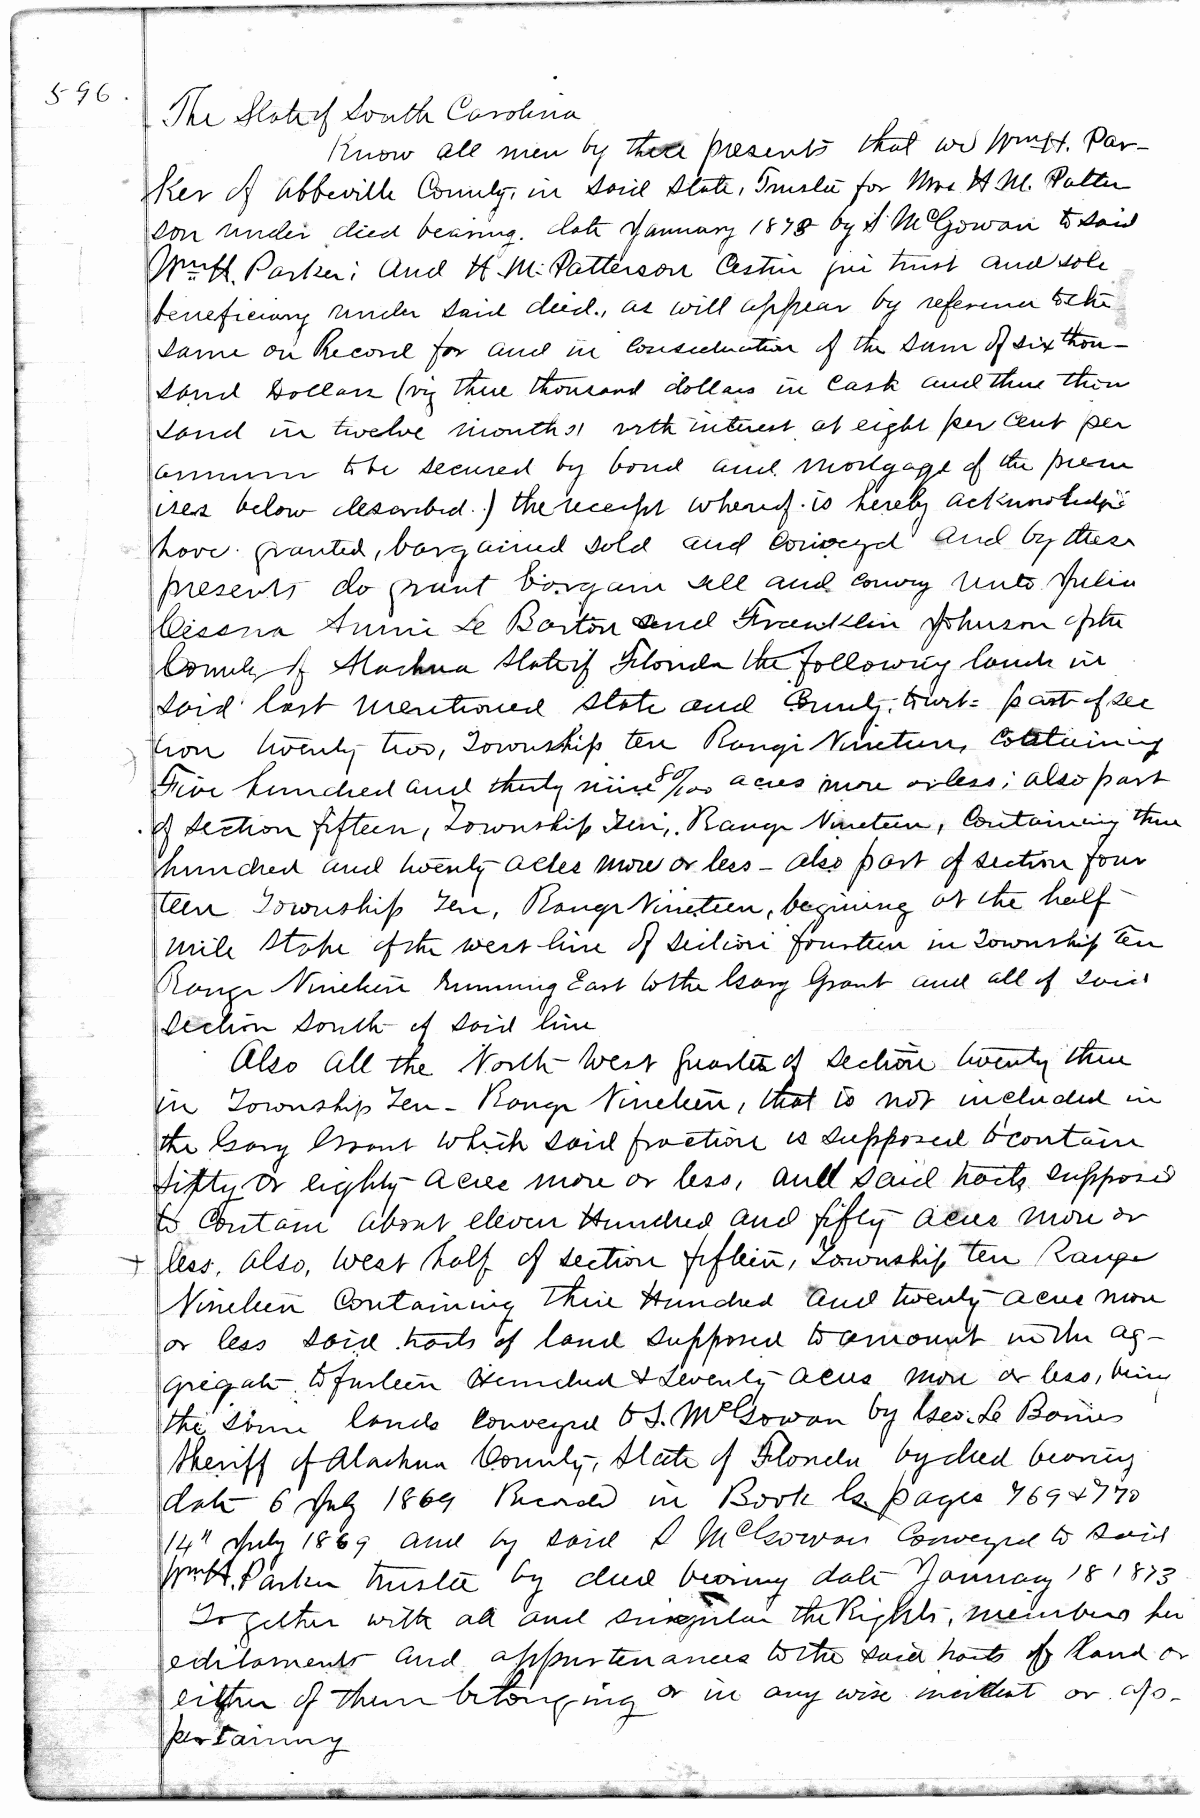 596.
The State of South Carolina
Know all men by these presents that we Wm H. Par-
ker of Abbeville County, in said State, Trustee for Mrs H. M. Patter
son under died bearing. date January 1873 by S McGowan to said
Wm H. Parker; And H. M. Patterson Cestin que trust and sole
beneficiary under said deed., as will appear by reference to the
same on Record for and in consideration of the sum of six thou-
sand Dollars (viz three thousand dollars in cash and three thou
sand in twelve months, with interest at eight per cent per
annum to be secured by bond and mortgage of the prem
ises below described.) the receipt whereof is hereby acknowledged
have granted, bargained sold and conveyed and by these
presents do grant bargain sell and convey unto Julia
Cessna Annie Le Barton and Franklin Johnson of the
County of Alachua State of Florida the following lands in
said last mentioned State and County, to wit= part of sec
tion twenty two, Township ten Range Nineteen, containing
Five hundred and thirty nine 80/100 acres more or less; also part
of section fifteen, Township Ten, Range Nineteen, containing three
hundred and twenty acres more or less – also part of section four
teen Township Ten, Range Nineteen, begining at the half
mile stake of the west line of section fourteen in Township ten
Range Nineteen running East to the Gary Grant and all of said
section South of said line
Also all the North West quarter of section twenty three
in Township Ten – Range Nineteen, that is not included in
the Gary Grant which said fraction is supposed to contain
sixty or eighty acres more or less, and said tracts supposed
to contain about eleven Hundred and fifty acres more or
less, also, West half of section fifteen, Township ten Range
Nineteen containing three Hundred and twenty acres more
or less said tracts of land supposed to amount in the ag-
gregate to fourteen Hundred & Seventy acres more or less, being
the same lands conveyed to S. McGowan by Geo. Le Barnes
Sheriff of Alachua County, State of Florida by deed bearing
date 6 July 1869 Recorded in Book G. pages 769 & 770
14" July 1869 and by said S McGowan conveyed to said
Wm H. Parker trustee by deed bearing date January 18 1873
Together with all and singular the Rights, members her
editaments and appurtenances to the said tracts of land or
either of them belonging or in any wise incident or ap-
pertaining